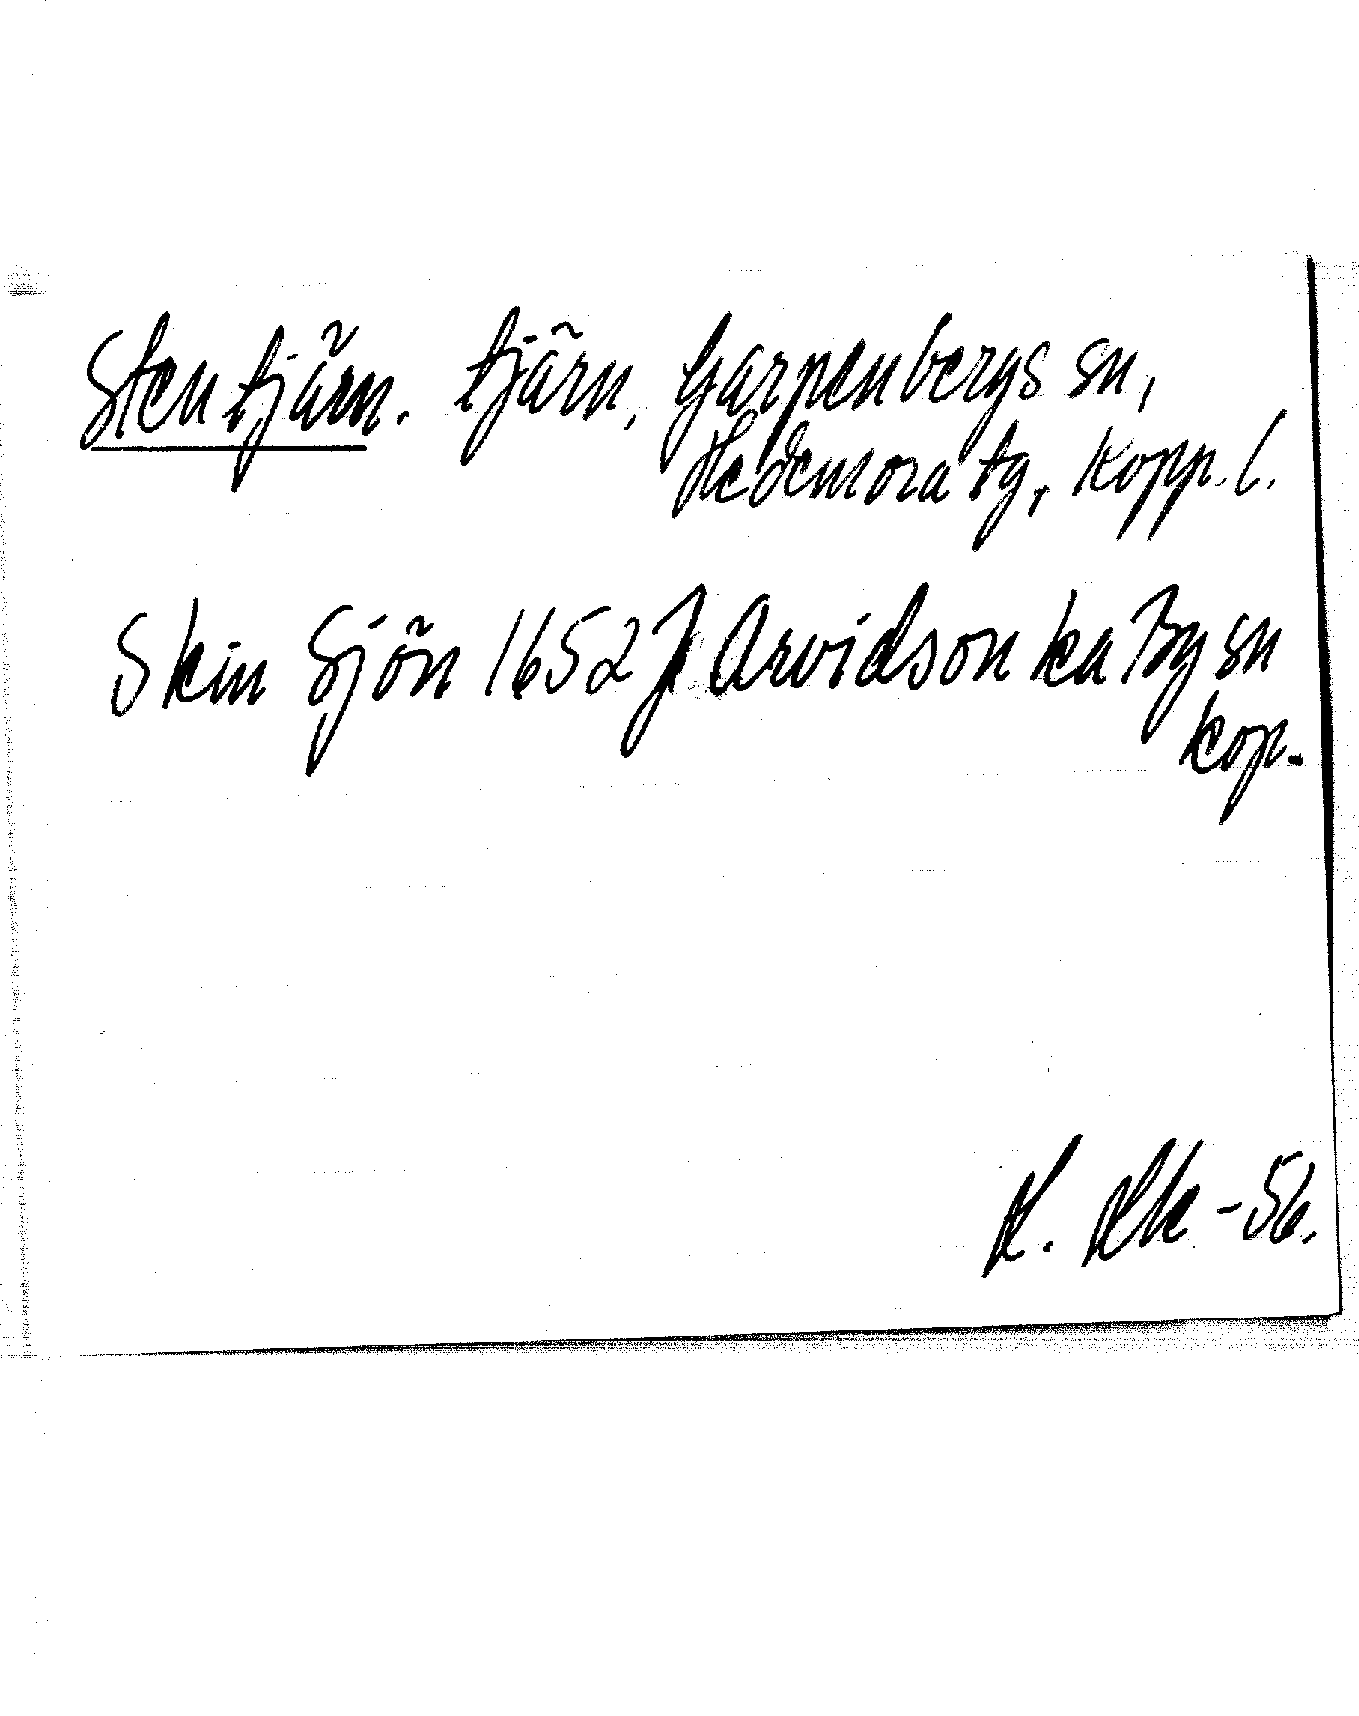 Stentjärn. tjärn, Garpenbergs sn,
Hedemora tg, Kopp. l.
Skin Sjön 1652 J Arvidson ka By sn
kop.
R. -56.